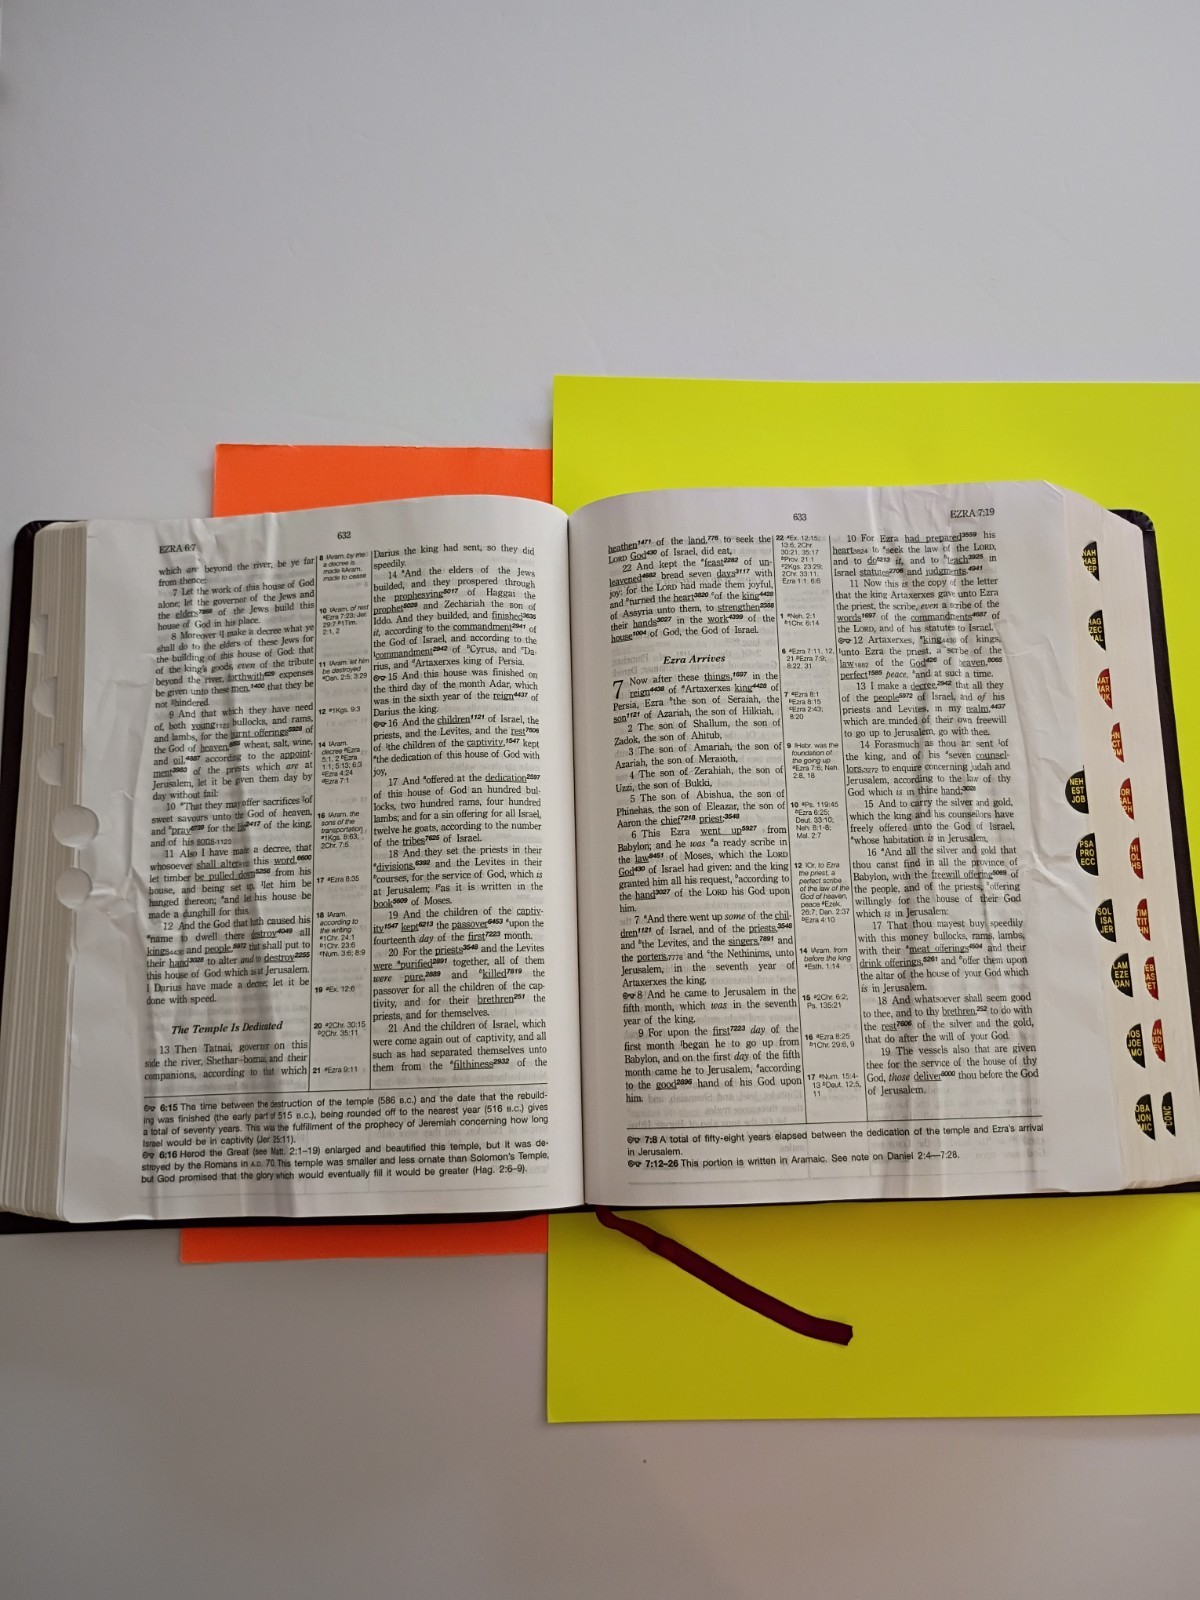 EZRA 6:7
632
which are beyond the river, be ye far
from thence:
7 Let the work of this house of God
alone; let the governor of the Jews and
the elders of the Jews build this
house of God in his place.
8 Moreover I make a decree what ye
shall do to the elders of these Jews for
the building of this house of God: that
of the king's goods, even of the tribute
beyond the river, forthwith expenses
be given unto these men,1400 that they be
not hindered.
9 And that which they have need
of, both young bullocks, and rams,
and lambs, for the burnt offerings of
the God of heaven, wheat, salt, wine,
and oil, according to the appoint-
ment of the priests which are at
Jerusalem, let it be given them day by
day without fail:
10 That they may offer sacrifices of
sweet savours unto the God of heaven,
and pray for the life of the king,
and of his sons.
11 Also I have made a decree, that
whosoever shall alter this word,
let timber be pulled down from his
house, and being set up, let him be
hanged thereon; and let his house be
made a dunghill for this.
12 And the God that hath caused his
name to dwell there destroy all
kings and people, that shall put to
their hand to alter and to destroy
this house of God which is at Jerusalem.
I Darius have made a decree; let it be
done with speed.
The Temple Is Dedicated
13 Then Tatnai, governor on this
side the river, Shethar-boznai, and their
companions, according to that which
8 Aram. by me
a decree is
made
made to cease
10 Aram. of rest
Ezra 7:23; Jer.
29:7 1Tim.
2:1, 2
11 Aram. let him
be destroyed
Dan. 2:5; 3:29
12 1Kgs. 9:3
14 Aram.
decree Ezra
5:1, 2 Ezra
1:1; 5:13; 6:3
Ezra 4:24
Ezra 7:1
16 Aram. the
sons of the
transportation
1Kgs. 8:63;
2Chr. 7:5
17 Ezra 8:35
18 Aram.
according to
the writing
1Chr. 24:1
1Chr. 23:6
Num. 3:6; 8:9
19 Ex. 12:6
20 2Chr. 30:15
2Chr. 35:11
21 Ezra 9:11
Darius the king had sent, so they did
speedily.
14 And the elders of the Jews
builded, and they prospered through
the prophesying5017 of Haggai the
prophet5029 and Zechariah the son of
Iddo. And they builded, and finished3635
it, according to the commandment2941 of
the God of Israel, and according to the
commandment2942 of Cyrus, and Da-
rius, and Artaxerxes king of Persia.
15 And this house was finished on
the third day of the month Adar, which
was in the sixth year of the reign4437 of
Darius the king.
16 And the children1121 of Israel, the
priests, and the Levites, and the rest7606
of the children of the captivity,1547 kept
the dedication of this house of God with
joy,
17 And offered at the dedication2597
of this house of God an hundred bul-
locks, two hundred rams, four hundred
lambs; and for a sin offering for all Israel,
twelve he goats, according to the number
of the tribes7625 of Israel.
18 And they set the priests in their
divisions,6392 and the Levites in their
courses, for the service of God, which is
at Jerusalem; as it is written in the
book5609 of Moses.
19 And the children of the captiv-
ity1547 kept6213 the passover6453 upon the
fourteenth day of the first7223 month.
20 For the priests3548 and the Levites
were purified2891 together, all of them
were pure,2889 and killed7819 the
passover for all the children of the cap-
tivity, and for their brethren251 the
priests, and for themselves.
21 And the children of Israel, which
were come again out of captivity, and all
such as had separated themselves unto
them from the filthiness2932 of the
6:15 The time between the destruction of the temple (586 B.C.) and the date that the rebuild-
ing was finished (the early part of 515 B.C.), being rounded off to the nearest year (516 B.C.) gives
a total of seventy years. This was the fulfillment of the prophecy of Jeremiah concerning how long
Israel would be in captivity (Jer. 25:11).
6:16 Herod the Great (see Matt. 2:1–19) enlarged and beautified this temple, but it was de-
stroyed by the Romans in A.D. 70. This temple was smaller and less ornate than Solomon's Temple,
but God promised that the glory which would eventually fill it would be greater (Hag. 2:6–9).
633
EZRA 7:19
heathen1471 of the land,776 to seek the
LORD God430 of Israel, did eat,
22 And kept the feast2282 of un-
leavened4682 bread seven days3117 with
joy: for the LORD had made them joyful,
and turned the heart3820 of the king4428
of Assyria unto them, to strengthen2388
their hands3027 in the work4399 of the
house1004 of God, the God of Israel.
Ezra Arrives
7 Now after these things,1697 in the
reign4438 of Artaxerxes king4428 of
Persia, Ezra the son of Seraiah, the
son1121 of Azariah, the son of Hilkiah,
2 The son of Shallum, the son of
Zadok, the son of Ahitub,
3 The son of Amariah, the son of
Azariah, the son of Meraioth,
4 The son of Zerahiah, the son of
Uzzi, the son of Bukki,
5 The son of Abishua, the son of
Phinehas, the son of Eleazar, the son of
Aaron the chief7218 priest:3548
6 This Ezra went up5927 from
Babylon; and he was a ready scribe in
the law8451 of Moses, which the LORD
God430 of Israel had given: and the king
granted him all his request, according to
the hand3027 of the LORD his God upon
him.
7 And there went up some of the chil-
dren1121 of Israel, and of the priests,3548
and the Levites, and the singers,7891 and
the porters,7778 and the Nethinims, unto
Jerusalem, in the seventh year of
Artaxerxes the king.
8 And he came to Jerusalem in the
fifth month, which was in the seventh
year of the king.
9 For upon the first7223 day of the
first month began he to go up from
Babylon, and on the first day of the fifth
month came he to Jerusalem, according
to the good2896 hand of his God upon
him.
22 Ex. 12:15;
13:6; 2Chr.
30:21; 35:17
Prov. 21:1
2Kgs. 23:29;
2Chr. 33:11;
Ezra 1:1; 6:6
1 Neh. 2:1
1Chr. 6:14
6 Ezra 7:11, 12,
21 Ezra 7:9;
8:22, 31
7 Ezra 8:1
Ezra 8:15
Ezra 2:43;
8:20
9 Hebr. was the
foundation of
the going up
Ezra 7:6; Neh.
2:8, 18
10 Ps. 119:45
Ezra 6:25;
Deut. 33:10;
Neh. 8:1-8;
Mal. 2:7
12 Or, to Ezra
the priest, a
perfect scribe
of the law of the
God of heaven,
peace Ezek.
26:7; Dan. 2:37
Ezra 4:10
14 Aram. from
before the king
Esth. 1:14
15 2Chr. 6:2;
Ps. 135:21
16 Ezra 8:25
1Chr. 29:6, 9
17 Num. 15:4-
13 Deut. 12:5,
11
10 For Ezra had prepared3559 his
heart3824 to seek the law of the LORD,
and to do6213 it, and to teach3925 in
Israel statutes2706 and judgments.4941
11 Now this is the copy of the letter
that the king Artaxerxes gave unto Ezra
the priest, the scribe, even a scribe of the
words1697 of the commandments4687 of
the LORD, and of his statutes to Israel.
12 Artaxerxes, king4430 of kings,
unto Ezra the priest, a scribe of the
law1882 of the God426 of heaven,8065
perfect1585 peace, and at such a time.
13 I make a decree,2942 that all they
of the people5972 of Israel, and of his
priests and Levites, in my realm,4437
which are minded of their own freewill
to go up to Jerusalem, go with thee.
14 Forasmuch as thou art sent of
the king, and of his seven counsel-
lors,3272 to enquire concerning Judah and
Jerusalem, according to the law of thy
God which is in thine hand;3028
15 And to carry the silver and gold,
which the king and his counsellors have
freely offered unto the God of Israel,
whose habitation is in Jerusalem,
16 And all the silver and gold that
thou canst find in all the province of
Babylon, with the freewill offering5069 of
the people, and of the priests, offering
willingly for the house of their God
which is in Jerusalem:
17 That thou mayest buy speedily
with this money bullocks, rams, lambs,
with their meat offerings4504 and their
drink offerings,5261 and offer them upon
the altar of the house of your God which
is in Jerusalem.
18 And whatsoever shall seem good
to thee, and to thy brethren,252 to do with
the rest7606 of the silver and the gold,
that do after the will of your God.
19 The vessels also that are given
thee for the service of the house of thy
God, those deliver8000 thou before the God
of Jerusalem.
7:8 A total of fifty-eight years elapsed between the dedication of the temple and Ezra's arrival
in Jerusalem.
7:12–26 This portion is written in Aramaic. See note on Daniel 2:4—7:28.
NAH
HAB
ZEP
HAG
ZEC
MAL
NEH
EST
JOB
PSA
PRO
ECC
SOL
ISA
JER
LAM
EZE
DAN
HOS
JOE
AMO
OBA
JON
MIC
CONC